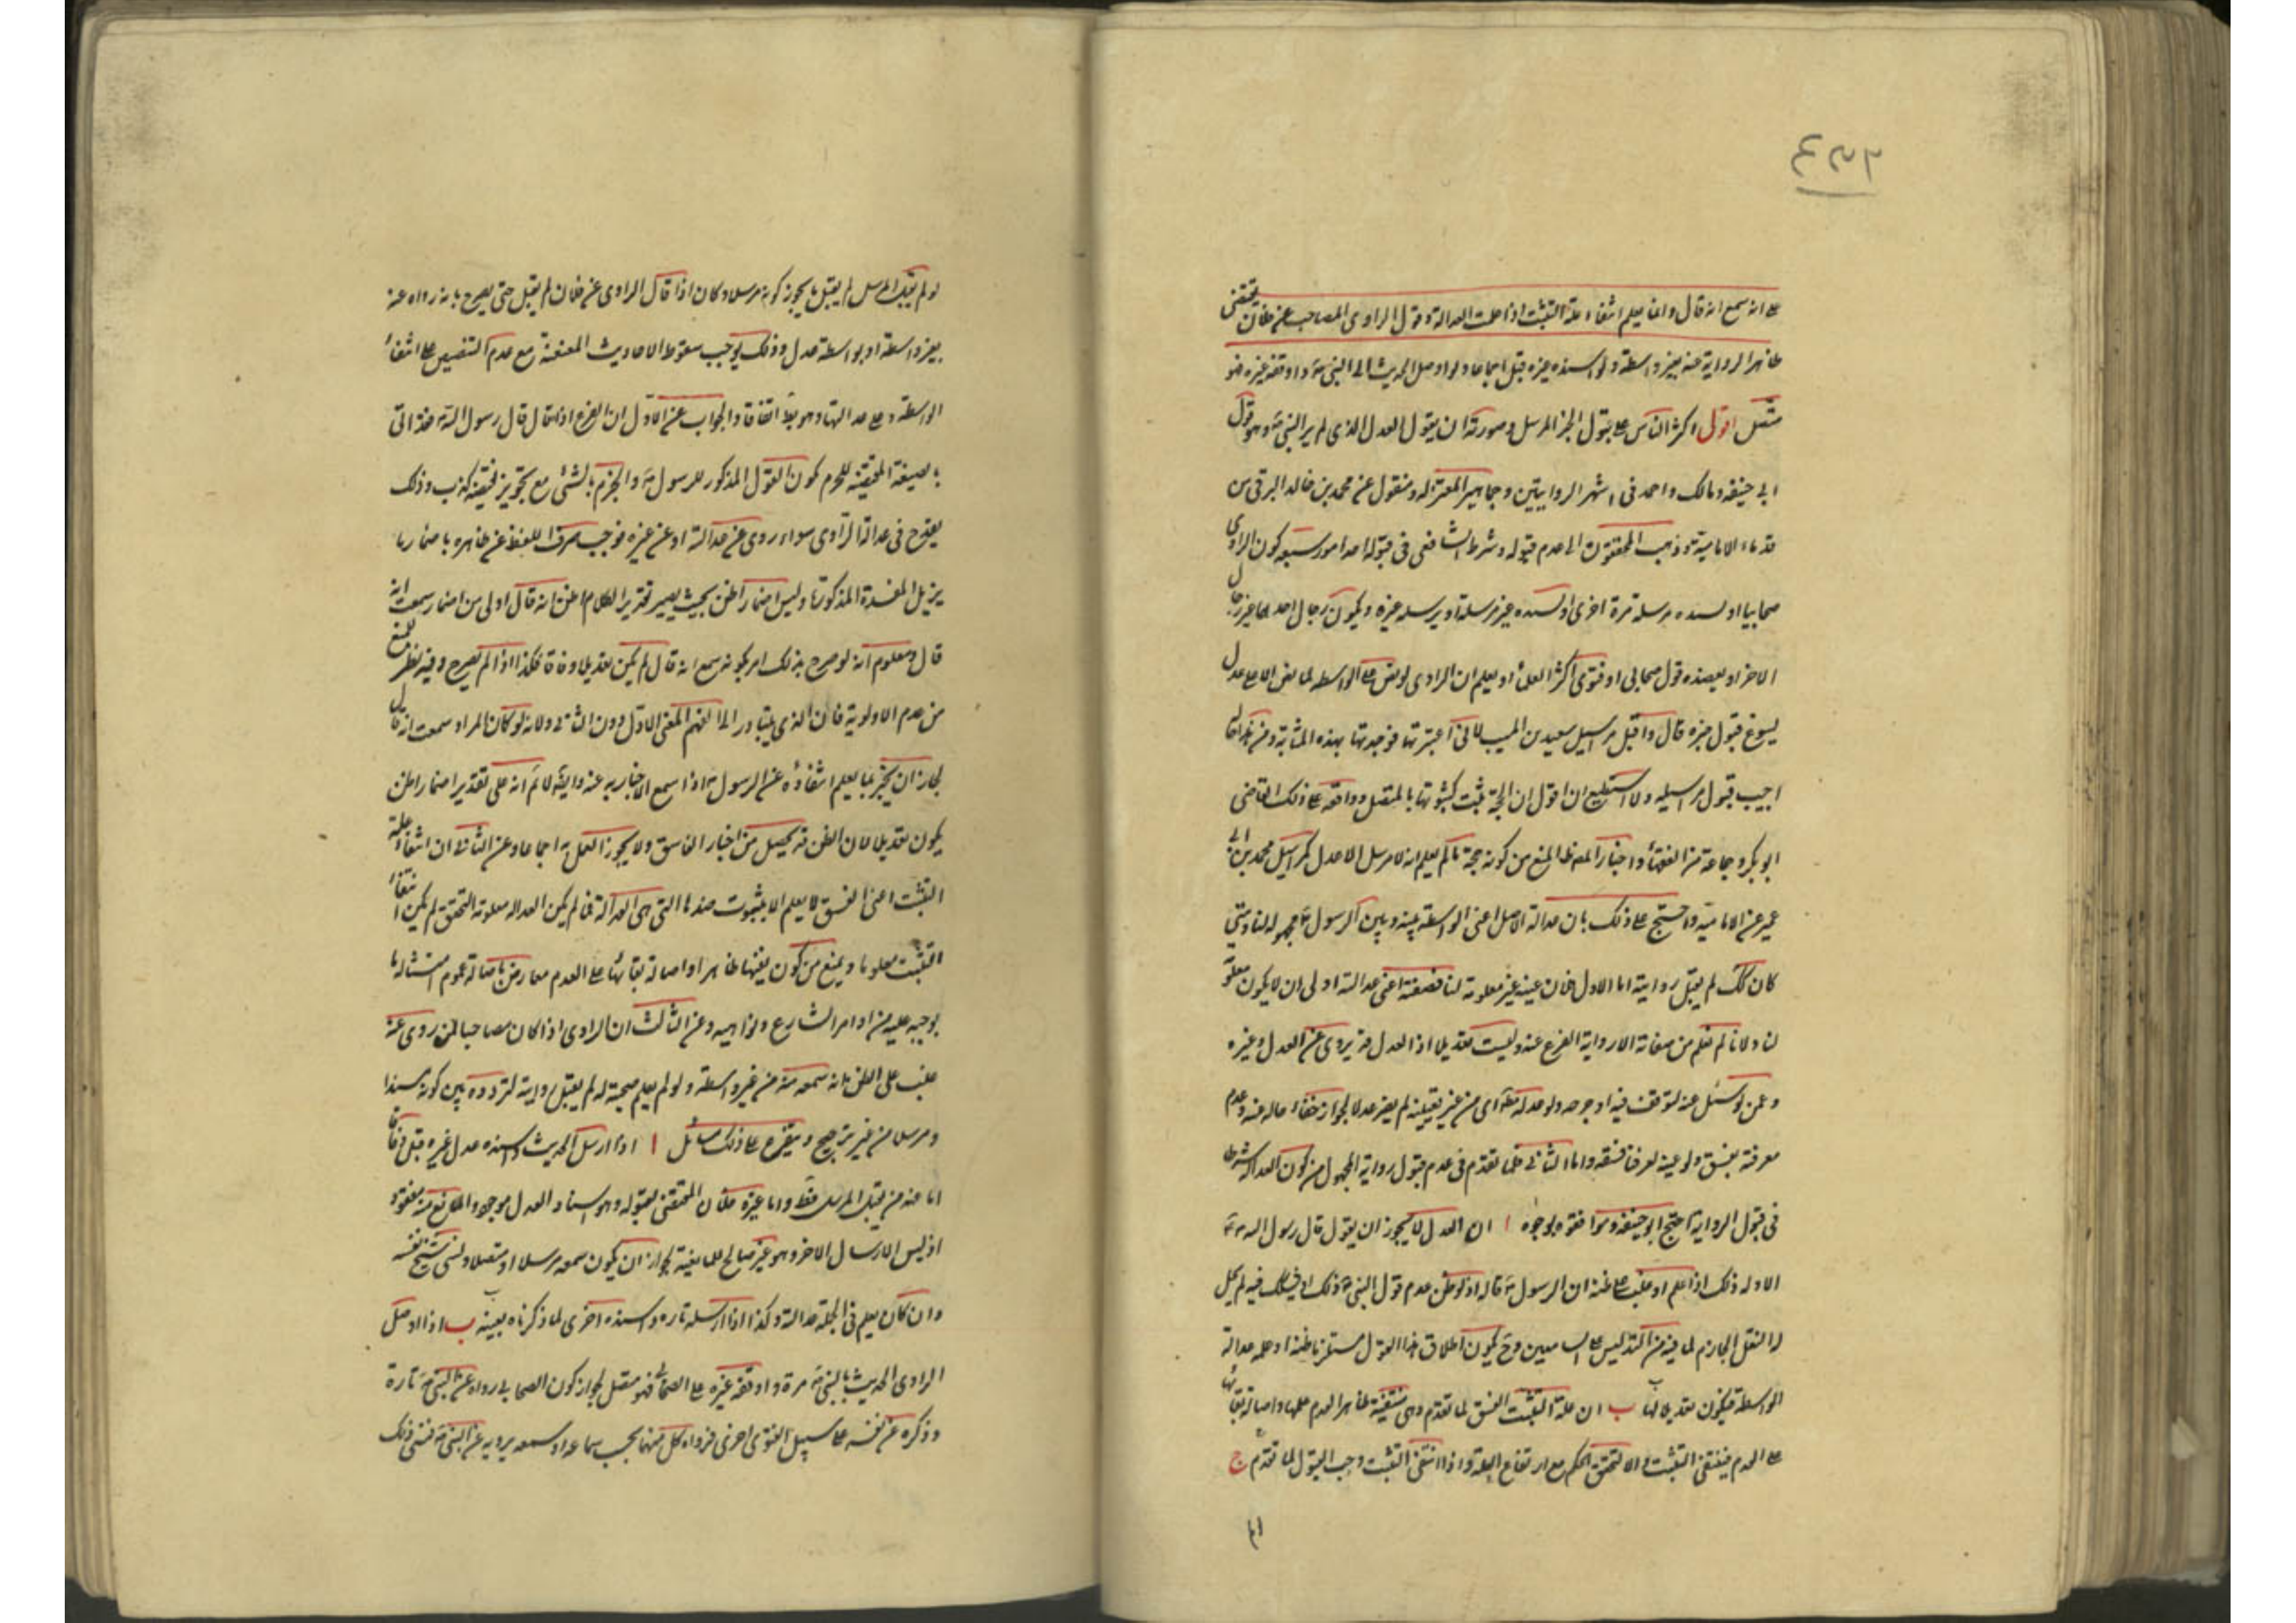 ٤٣٦
على انه سمع انه قال وانما يعلم انتفاء علة التثبت اذا علمت العدالة وقول الراوى المصاحب عن فلان يقتضى
ظاهرا لرواية عنه بغير واسطة ولو اسنده غيره قبل اجماعا ولو اوصل الحديث الى النبى ص واوقفه غيره فهو
متصل اقول اكثر الناس على قبول الخبر المرسل وصورته ان يقول العدل الذى لم ير النبى وهو قول
ابى حنيفة ومالك واحمد فى اشهر الروايتين وجماهير المعتزله ومنقول عن محمد بن خالد البرقى من
قدماء الامامية وذهب المحققون الى عدم قبوله وشرط الشافعى فى قبوله احد امور سبعه كون الراوى
صحابيا او اسنده مرسله مرة اخرى او اسنده غير مرسله او يرسله غيره ويكون رجال احدهما غير رجال
الاخر او يعضده قول صحابى او فتوى اكثر العلماء او يعلم ان الراوى لو نص على الواسطه لما نص الا على عدل
يسوغ قبول خبره قال واقبل مراسيل سعيد بن المسيب لانى اعتبرتها فوجدتها بهذه المثابة ومن هذا حاله
احب قبول مراسيله ولا استطيع ان اقول ان الحجة تثبت كثبوتها بالمتصل ووافقه على ذلك القاضى
ابو بكر وجماعة من الفقهاء واختار المصنف المنع من كونه حجة ما لم يعلم انه لا يرسل الا عن عدل كمراسيل محمد بن ابى
عمير عن الامامية واحتج على ذلك بان عدالة الاصل اعنى الواسطة بينه وبين الرسول ع مجهولة لنا ومتى
كان كك لم يقبل روايته اما الاول فلان عينه غير معلومة لنا فصفته اعنى عدالته اولى ان لا يكون معلومة
لنا ولانا لم نعلم من صفاته الا رواية الفرع عنه وليست تعديلا اذ العدل قد يروى عن العدل وغيره
وعمن لو سئل عنه لتوقف فيه او جرحه ولو عدله مطلقا اى من غير تعيينه لم يصر عدلا لجواز خفاء حاله عنه وعدم
معرفته بفسق ولو عينه لعرفنا فسقه واما الثانى فلما تقدم فى عدم قبول رواية المجهول من كون العدالة شرطا
فى قبول الرواية احتج ابو حنيفه وموافقوه بوجوه ا ان العدل لا يجوز ان يقول قال رسول الله ص
الا وله ذلك اذا علم او غلب على ظنه ان الرسول ص قاله اذ لو ظن عدم قول النبى ص ذلك او شك فيه لم يحل
له النقل الجازم لما فيه من التدليس على السامعين وح يكون اطلاق هذا القول مستلزما ظنه او علمه عدالة
الواسطة فيكون تعديلا لها ب ان علة التثبت الفسق لما تقدم وهى منتفية ظاهرا لعدم علمها واصالة بقائها
على العدم فينتفى التثبت والا لتحقق الحكم مع ارتفاع العلة واذا انتفى التثبت وجب القبول لما تقدم ج
لو لم يقبل المرسل لم يقبل ما يجوز كونه مرسلا وكان اذا قال الراوى عن فلان لم يقبل حتى يصرح بانه رواه عنه
بغير واسطة او بواسطة عدل وذلك يوجب سقوط الاحاديث المعنعنة مع عدم التنصيص على انتفاء
الواسطة وعلى عدالتها وهو بط اتفاقا والجواب عن الاول ان الفرع اذا قال قال رسول الله ص فقد اتى
بالصيغة المقتضية للجزم بكون القول المذكور للرسول ص والجزم بالشئ مع تجويز نقيضه كذب وذلك
يقدح فى عدالة الراوى سواء روى عن عدالته او عن غيره فوجب صرف اللفظ عن ظاهره باضمار ما
يزيل المفسدة المذكورة وليس اضمار اظن بحيث يصير تقدير الكلام اظن انه قال اولى من اضمار سمعت انه
قال ومعلوم انه لو صرح بذلك اى بكونه سمع انه قال لم يكن تعديلا وفاقا فكذا اذا لم يصرح وفيه نظر للمنع
من عدم الاولوية فان الذى يتبادر الى الفهم المعنى الاول دون الثانى ولانه لو كان المراد سمعت انه قال
لجاز ان يخبر بما يعلم انتفاؤه عن الرسول ص اذا سمع الاخبار به عنه وايضا لا نم انه على تقدير اضمار اظن
يكون تعديلا لان الظن قد يحصل من اخبار الفاسق ولا يجوز العمل به اجماعا وعن الثانى ان انتفاء علة
التثبت اعنى الفسق لا يعلم الا بثبوت ضدها التى هى العدالة فما لم يكن العدالة معلومة التحقق لم يكن انتفاء
التثبت معلوما ويمنع من كون نفيها ظاهرا واصالة بقائها على العدم معارض باصالة عدم امتثاله ما
يوجبه عليه من اوامر الشارع ونواهيه وعن الثالث ان الراوى اذا كان مصاحبا لمن روى عنه
غلب على الظن انه سمعه منه من غير واسطة ولو لم يعلم صحبته له لم يقبل روايته لتردده بين كونه مسندا
ومرسلا من غير ترجيح ويتفرع على ذلك مسائل ا اذا ارسل الحديث واسنده عدل غيره قبل وفاقا
اما عند من يقبل المرسل فظ واما غيره فلان المقتضى لقبوله وهو اسناد العدل موجود والمانع منه مفقود
اذ ليس الا ارسال الاخر وهو غير صالح للمانعية لجواز ان يكون سمعه مرسلا او متصلا ونسى شيخ نفسه
وان كان يعلم فى الجملة عدالته وكذا اذا ارسله تاره واسنده اخرى لما ذكرناه بعينه ب اذا اوصل
الراوى الحديث بالنبى ص مرة واوقفه غيره على الصحابى فهو متصل لجواز كون الصحابى رواه عن النبى ص تارة
وذكره عن نفسه على سبيل الفتوى اخرى فرواه كل منهما بحسب سماعه او سمعه يرويه عن النبى ص فنسى ذلك